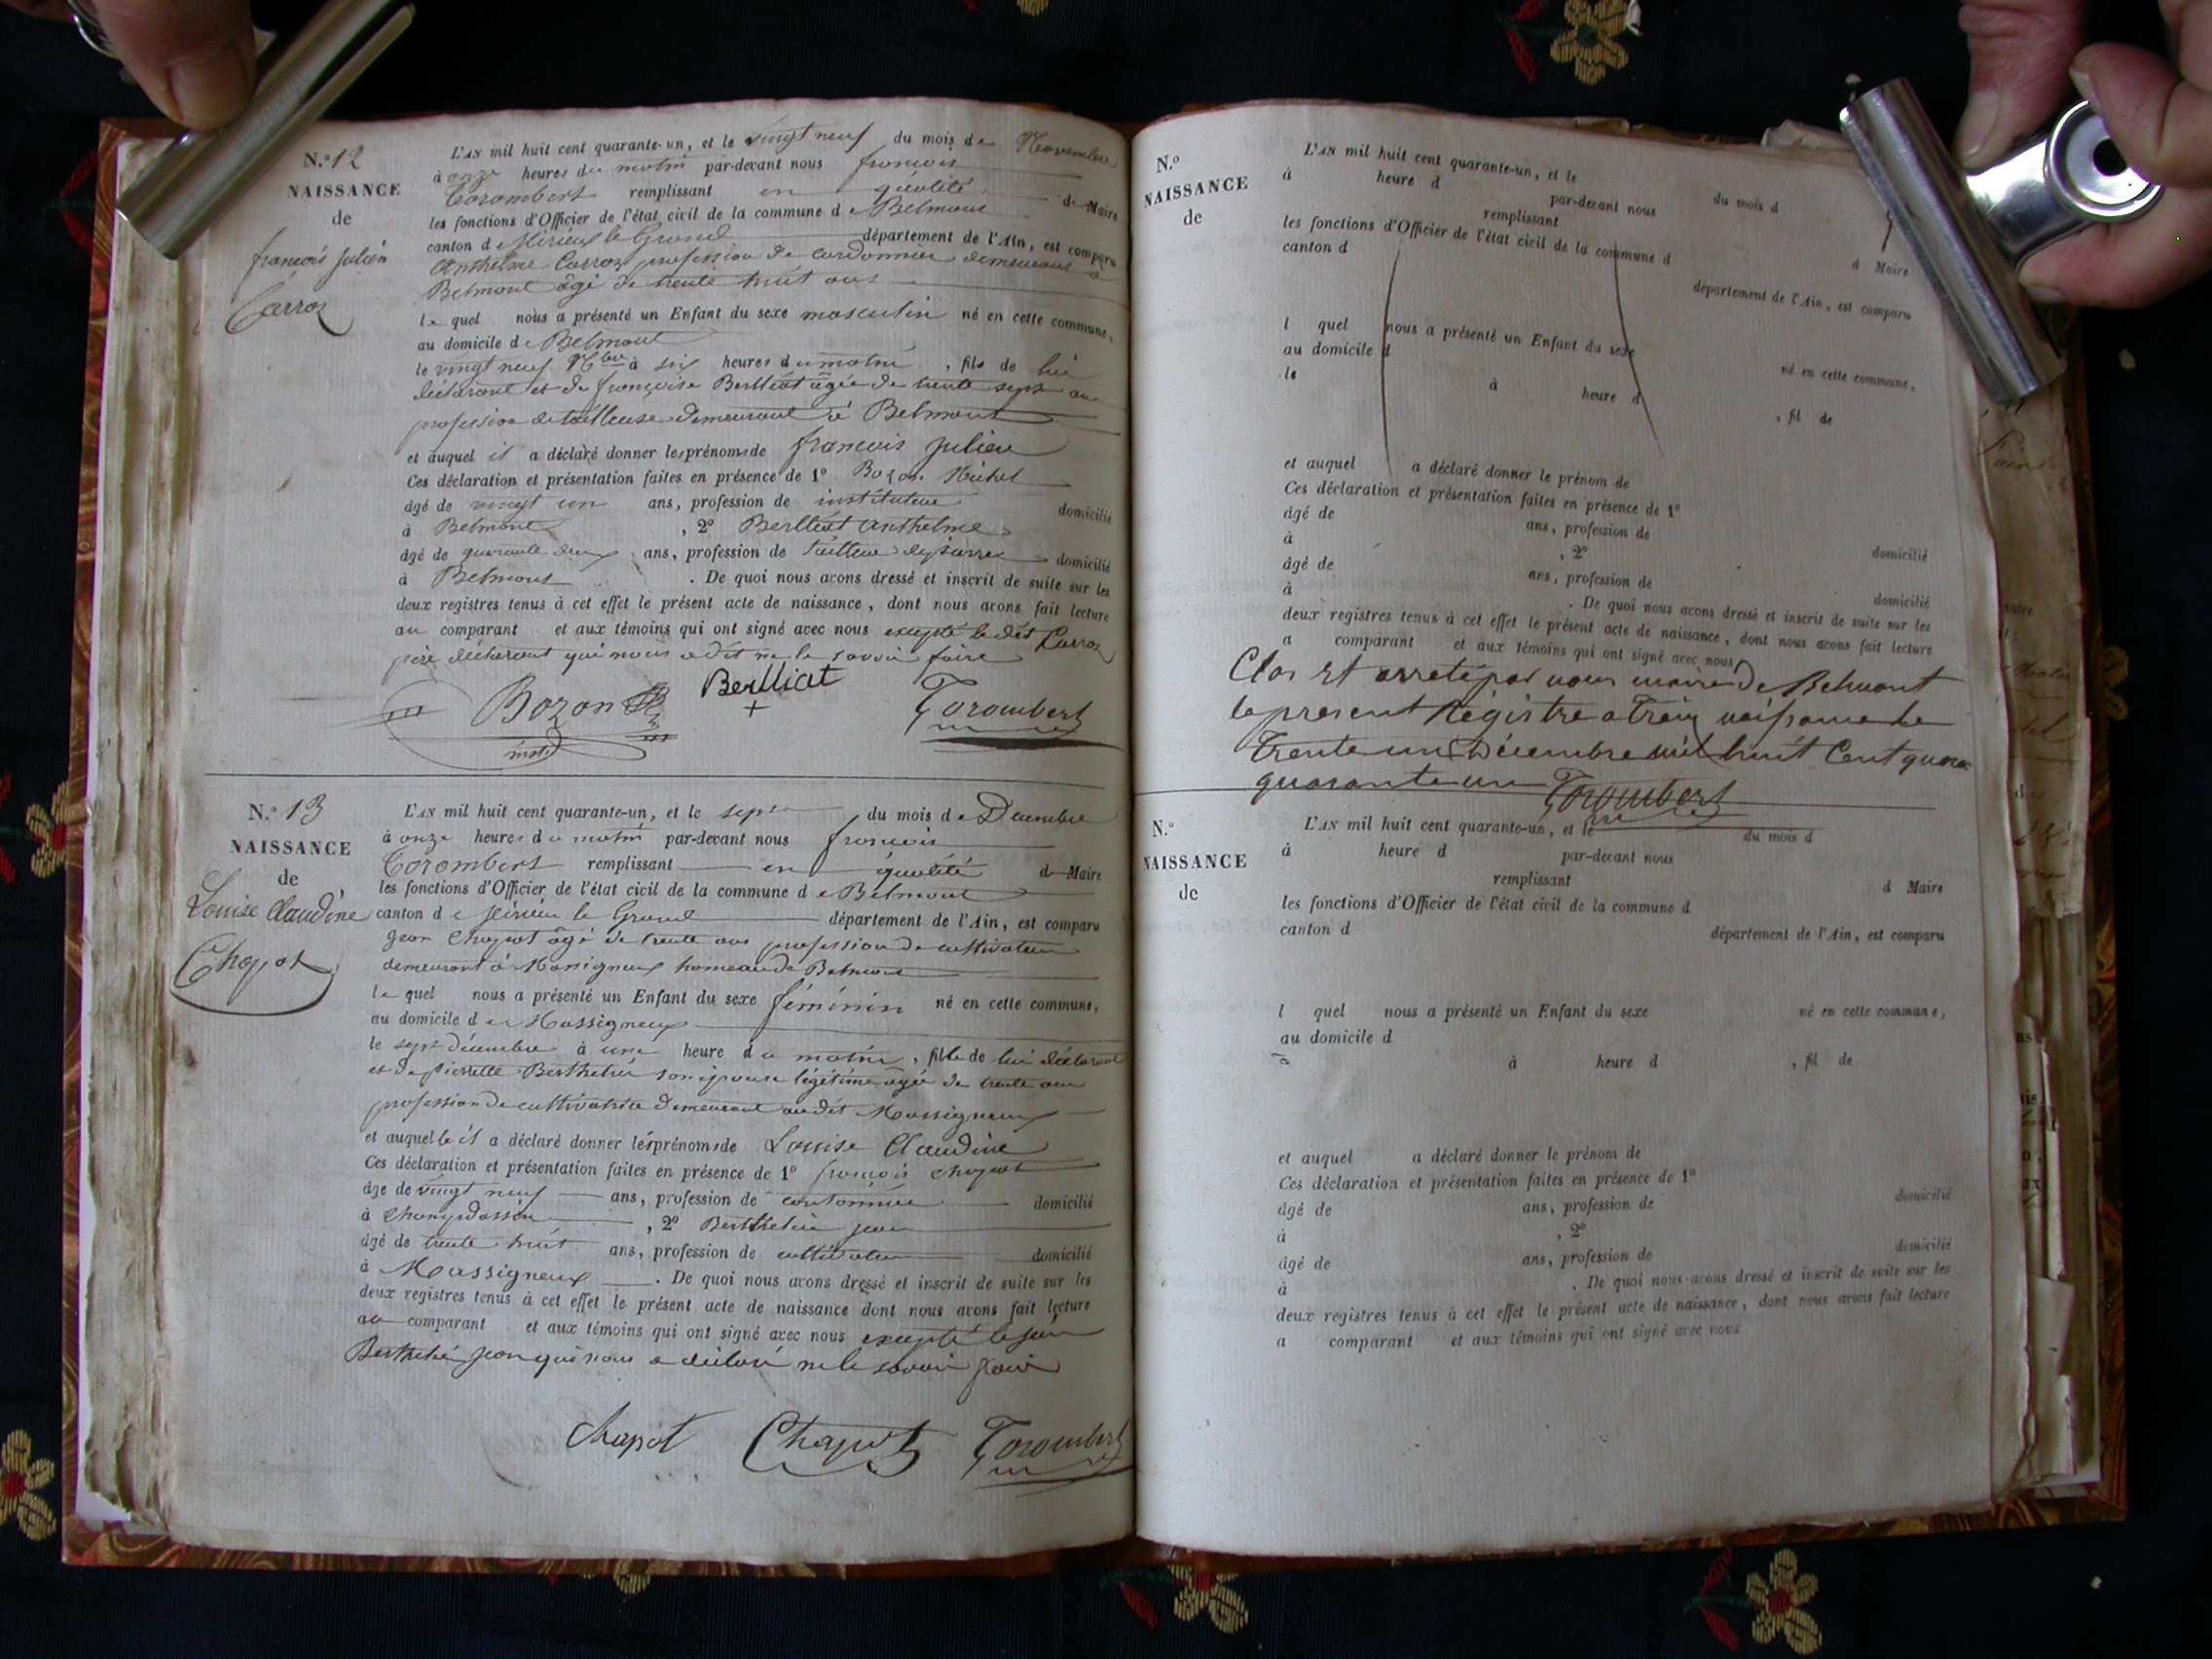 N.º 12
NAISSANCE
de
francois Julien
Carroz
L'AN mil huit cent quarante-un, et le vingt neuf du mois de Novembre
à onze heures du matin par-devant nous francois
Corombert remplissant en qualité de Maire
les fonctions d'Officier de l'état civil de la commune de Belmont
canton de Virieux le Grand département de l'Ain, est comparu
Anthelme Carroz profession de cordonnier demeurant à
Belmont âgé de trente huit ans
lequel nous a présenté un Enfant du sexe masculin né en cette commune,
au domicile de Belmont
le vingt neuf 9bre à six heures du matin, fils de lui
déclarant et de françoise Berlliat âgée de trente sept ans
profession de tailleuse demeurant à Belmont
et auquel il a déclaré donner les prénoms de francois Julien
Ces déclaration et présentation faites en présence de 1º Bozon Michel
âgé de vingt un ans, profession de instituteur domicilié
à Belmont, 2º Berlliat Anthelme
âgé de quarante deux ans, profession de tailleur de pierres domicilié
à Belmont. De quoi nous avons dressé et inscrit de suite sur les
deux registres tenus à cet effet le présent acte de naissance, dont nous avons fait lecture
au comparant et aux témoins qui ont signé avec nous excepté le dit Carroz
père déclarant qui nous a dit ne le savoir faire
Bozon Berlliat Corombert
N.º 13
NAISSANCE
de
Louise Claudine
Chapot
L'AN mil huit cent quarante-un, et le sept du mois de Décembre
à onze heures du matin par-devant nous francois
Corombert remplissant en qualité de Maire
les fonctions d'Officier de l'état civil de la commune de Belmont
canton de Virieu le Grand département de l'Ain, est comparu
Jean Chapot âgé de trente ans profession de cultivateur
demeurant à Massigneux hameau de Belmont
lequel nous a présenté un Enfant du sexe féminin né en cette commune,
au domicile de Massigneux
le sept décembre à une heure du matin, fille de lui déclarant
et de pierrette Berthelié son épouse légitime âgée de trente ans
profession de cultivatrice demeurant au dit Massigneux
et auquelle il a déclaré donner les prénoms de Louise Claudine
Ces déclaration et présentation faites en présence de 1º francois Chapot
âgé de vingt neuf ans, profession de cantonnier domicilié
à, 2º Berthelié jean
âgé de trente huit ans, profession de cultivateur domicilié
à Massigneux. De quoi nous avons dressé et inscrit de suite sur les
deux registres tenus à cet effet le présent acte de naissance dont nous avons fait lecture
au comparant et aux témoins qui ont signé avec nous excepté le
Berthelié jean qui nous a déclaré ne le savoir faire
Chapot Chapot Corombert
N.º
NAISSANCE
de
L'AN mil huit cent quarante-un, et le du mois d
à heure d par-devant nous
remplissant d Maire
les fonctions d'Officier de l'état civil de la commune d
canton d département de l'Ain, est comparu
l quel nous a présenté un Enfant du sexe né en cette commune,
au domicile d
le à heure d, fil de
et auquel a déclaré donner le prénom de
Ces déclaration et présentation faites en présence de 1º
âgé de ans, profession de domicilié
à, 2º
âgé de ans, profession de domicilié
à. De quoi nous avons dressé et inscrit de suite sur les
deux registres tenus à cet effet le présent acte de naissance, dont nous avons fait lecture
a comparant et aux témoins qui ont signé avec nous
Clos et arreté par nous maire de Belmont
le present Registre a Treiz naissance le
Trente un Décembre mil huit Cent quara
quarante un Corombert
N.º
NAISSANCE
de
L'AN mil huit cent quarante-un, et le du mois d
à heure d par-devant nous
remplissant d Maire
les fonctions d'Officier de l'état civil de la commune d
canton d département de l'Ain, est comparu
l quel nous a présenté un Enfant du sexe né en cette commune,
au domicile d
le à heure d, fil de
et auquel a déclaré donner le prénom de
Ces déclaration et présentation faites en présence de 1º
âgé de ans, profession de domicilié
à, 2º
âgé de ans, profession de domicilié
à. De quoi nous avons dressé et inscrit de suite sur les
deux registres tenus à cet effet le présent acte de naissance, dont nous avons fait lecture
a comparant et aux témoins qui ont signé avec nous